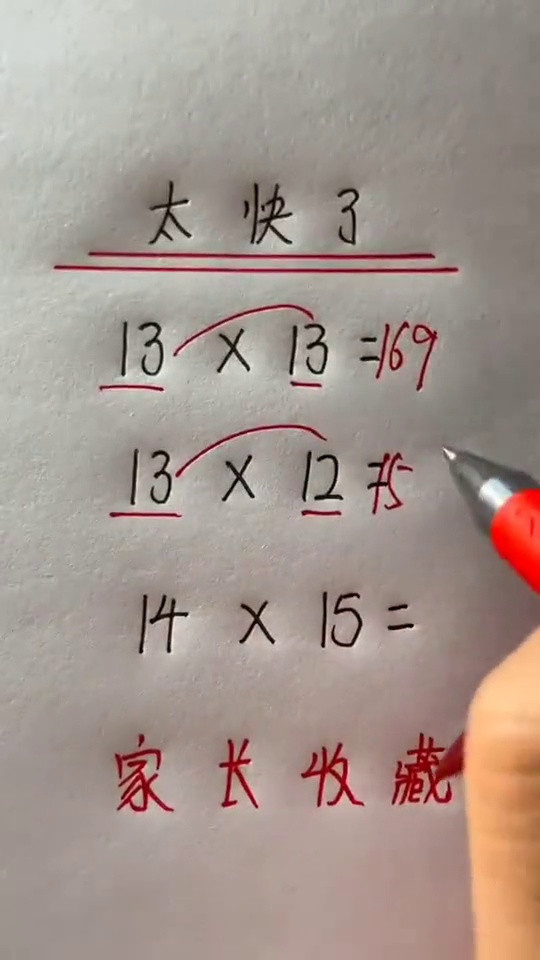 太快了
13 × 13 =169
13 × 12 =15
14 × 15 =
家长收藏